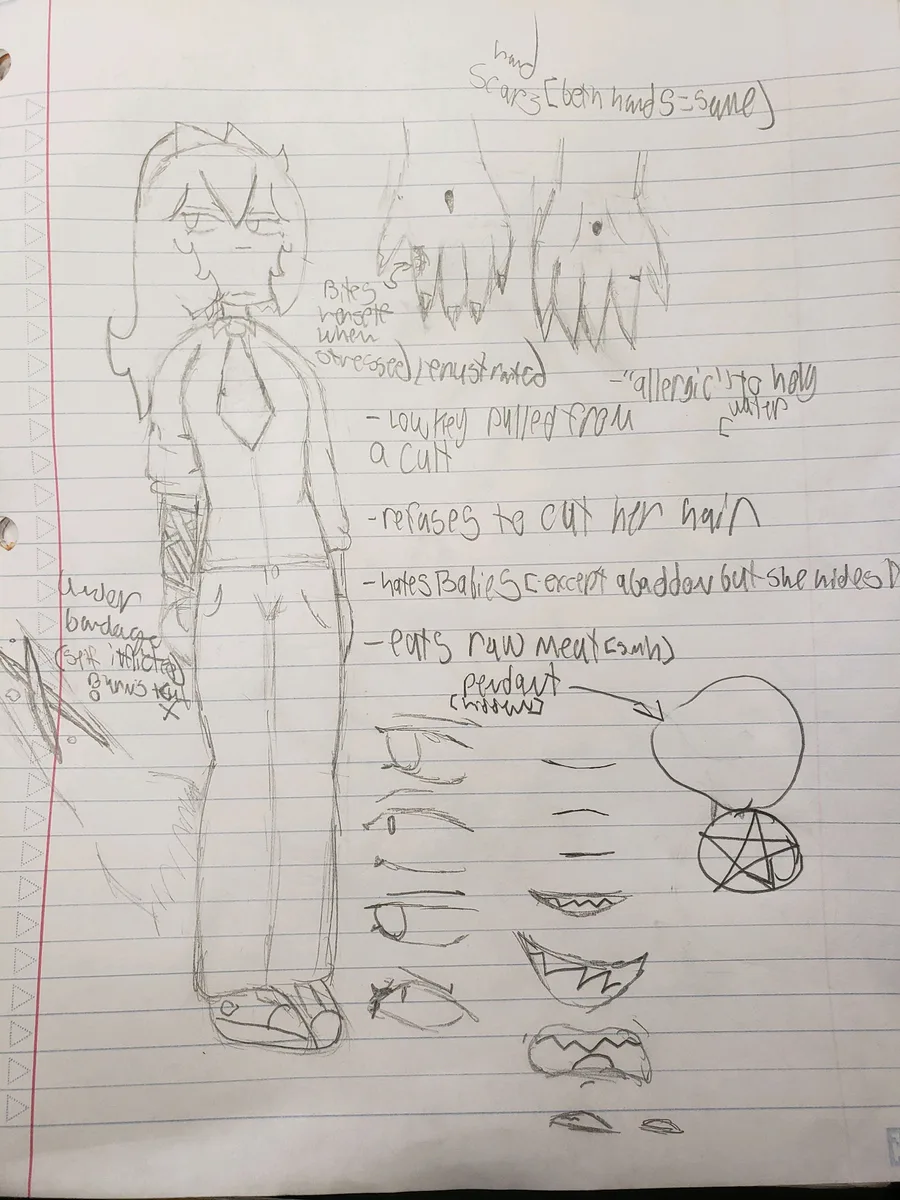 hand
Scars [both hands = same]
Bites
when
stressed/
- "allergic" to holy
water
- Lowkey pulled from
a cult
- refuses to cut her hair
- hates Babies [except abaddon but she hides
- eats raw meat [smh]
pendant
Under
bandage
(self inflicted)
Burns